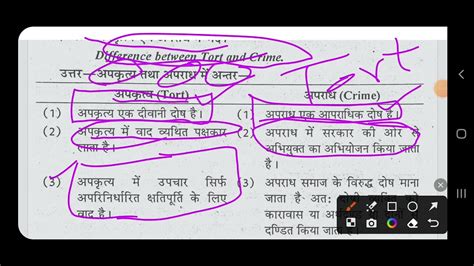 Difference between Tort and Crime.
उत्तर—अपकृत्य तथा अपराध में अन्तर—
Tort
अपकृत्य (Tort)
अपराध (Crime)
(1) अपकृत्य एक दीवानी दोष है।
(1) अपराध एक आपराधिक दोष है।
(2) अपकृत्य में वाद व्यथित पक्षकार
लाता है।
(2) अपराध में सरकार की ओर से
अभियुक्त का अभियोजन किया जाता
है।
(3) अपकृत्य में उपचार सिर्फ
अपरिनिर्धारित क्षतिपूर्ति के लिए
वाद है।
(3) अपराध समाज के विरुद्ध दोष माना
जाता है अतः
कारावास या
दण्डित किया जाता